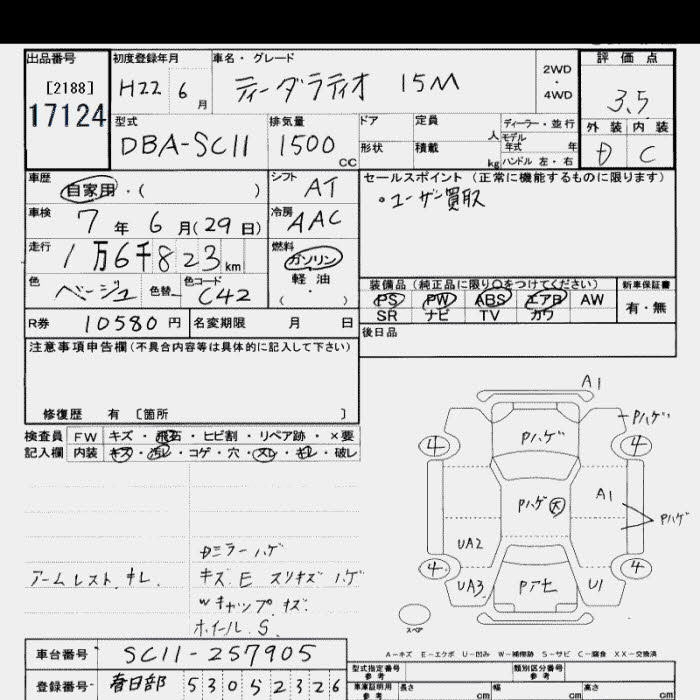 出品番号 初度登録年月 車名・グレード 2WD・4WD 評価点
[2188] H22 6月 ティーダラティオ 15M 3.5
17124 外装 内装
型式 排気量 ドア 定員 人 ディーラー・並行
DBA-SC11 1500CC 形状 積載 kg モデル年式 年 ハンドル 左・右 D C
車歴 自家用・( ) シフト AT セールスポイント (正常に機能するものに限ります)
・ユーザー買取
車検 7年6月(29日) 冷房 AAC
走行 1万6千823km 燃料 ガソリン
軽油
・( )
色 ベージュ 色替 色コード C42
装備品 (純正品に限り○をつけてください) 新車保証書
PS PW ABS エアB AW 有・無
SR ナビ TV カワ
R券 10580円 名変期限 月 日 後日品
注意事項申告欄(不具合内容等は具体的に記入して下さい)
修復歴 有 〔箇所 〕
検査員 FW キズ・飛石・ヒビ割・リペア跡・×要
記入欄 内装 キズ・汚レ・コゲ・穴・スレ・キレ・破レ
A1
Pハゲ
Pハゲ
4 4
Pハゲ 大
A1
Pハゲ
UA2
4 4
UA3 Pアセ U1
スペア
Dミラーハゲ
アームレスト キレ.
キズ E スリキズ ハゲ
Wキャップ キズ
ホイール S.
A-キズ E-エクボ U-凹み W-補修跡 S-サビ C-腐食 XX-交換済
車台番号 SC11-257905
型式指定番号 参考 類別区分番号 参考
登録番号 春日部 530 5 2326
車庫証明用 参考 長さ cm 幅 cm 高さ cm